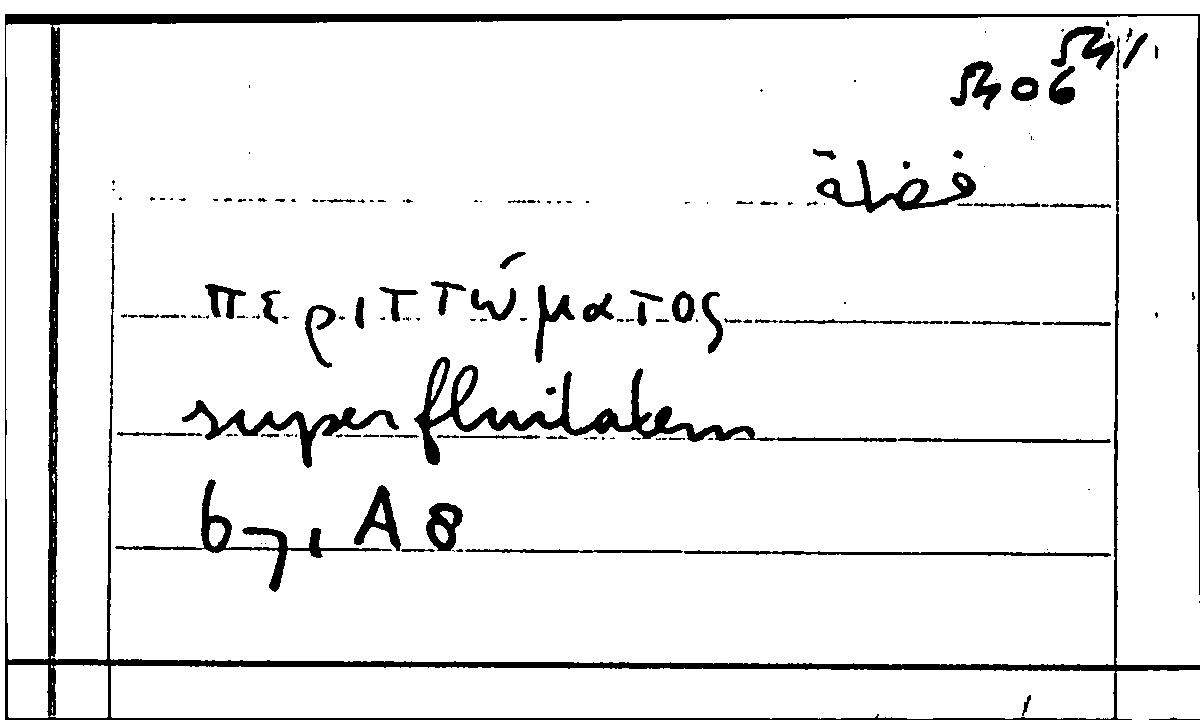 فضلة
περιττώματος
superfluitatem
67, A 8